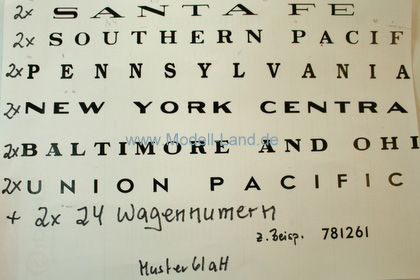 2x SANTA FE
2x SOUTHERN PACIF
2x PENNSYLVANIA
2x NEW YORK CENTRA
www.Modell-Land.de
2x BALTIMORE AND OHI
2x UNION PACIFIC
+ 2x 24 Wagennumern
z. Beisp. 781261
Musterblatt